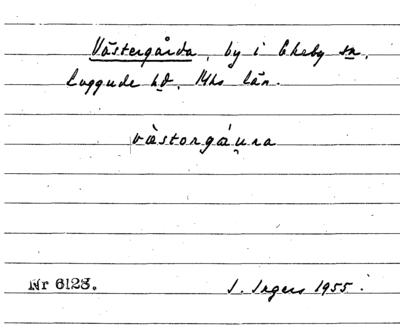 Västergårda, by i Ekeby sn,
Luggude hd, Mhs län.
västorgáu̯na
Nr 6123. J. Segers 1955.